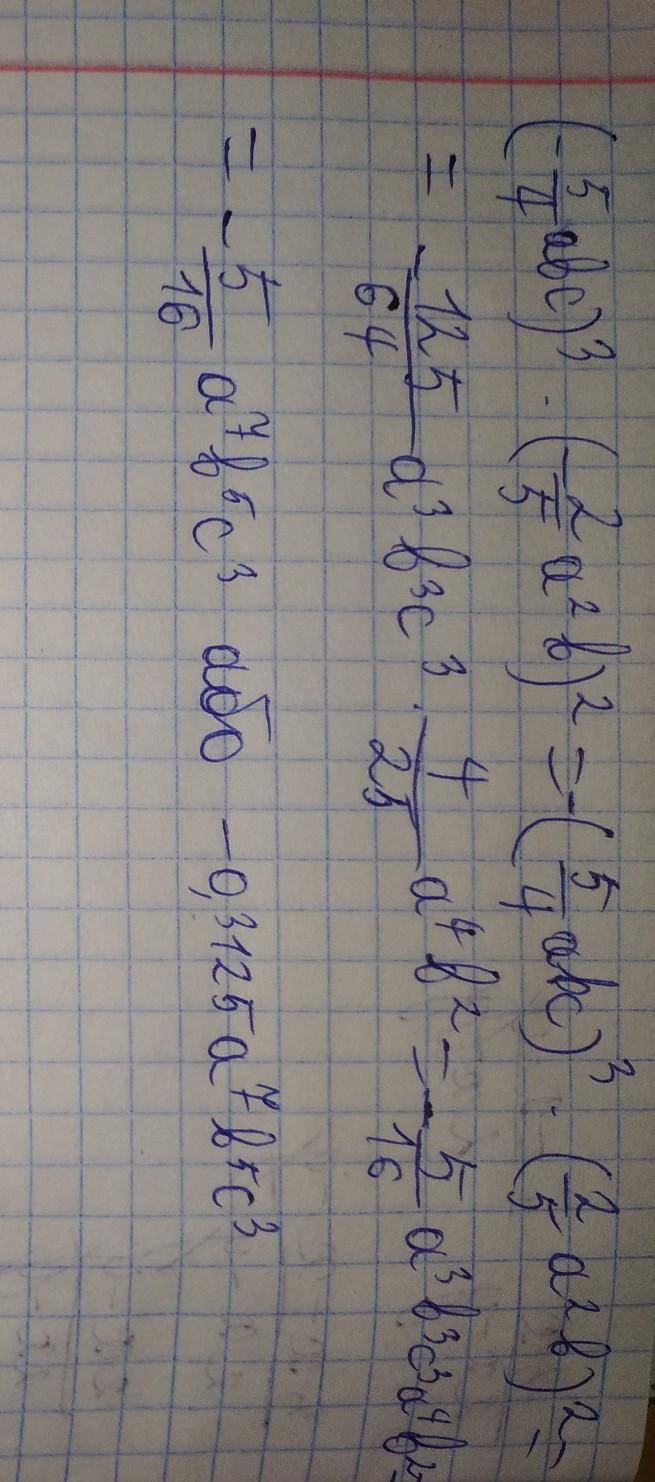 (-5/4 abc)³ · (2/5 a²b)² = -(5/4 abc)³ · (2/5 a²b)² =
= -125/64 a³b³c³ · 4/25 a⁴b² = -5/16 a³b³c³a⁴b² =
= -5/16 a⁷b⁵c³ або -0,3125a⁷b⁵c³